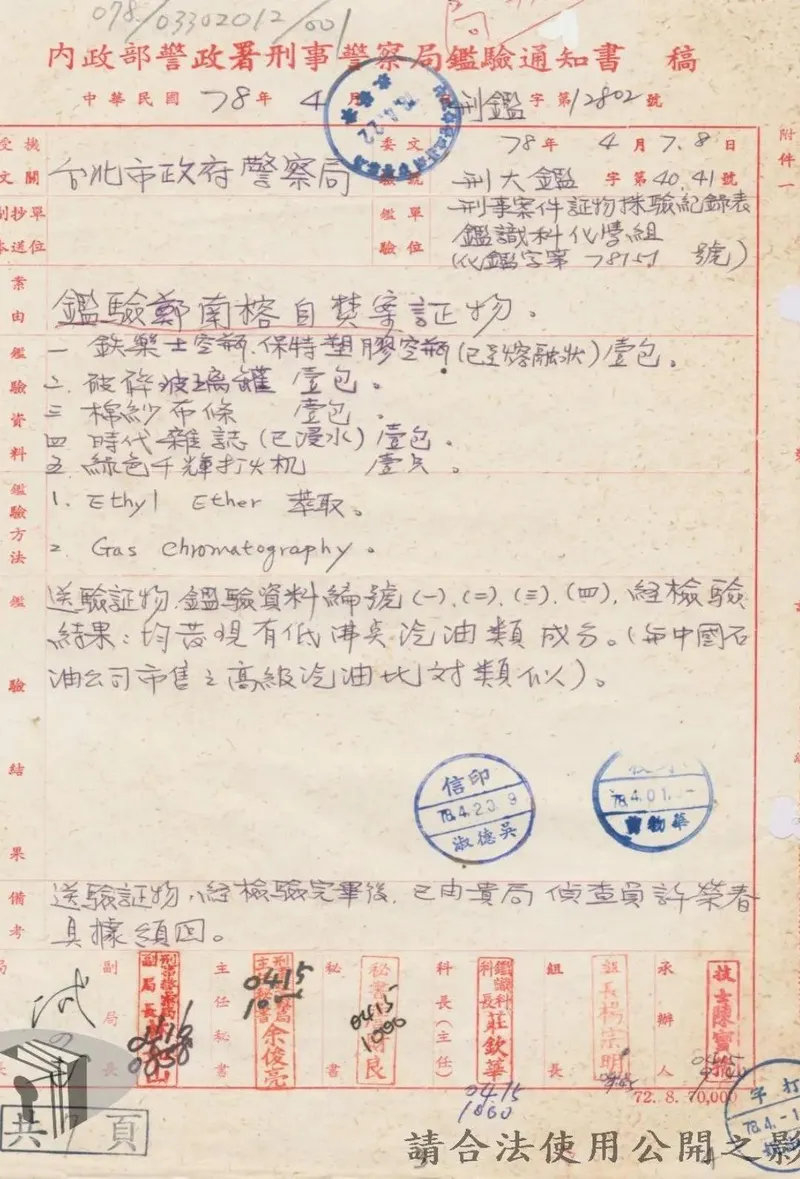 078/03302012/001
內政部警政署刑事警察局鑑驗通知書 稿
中華民國 78年 4月 刑鑑字第12802號
附件一
受文機關 台北市政府警察局
來文 78年 4月 7.8日
刑大鑑 字第40.41號
副本抄送單位
鑑驗單位 刑事案件証物採驗紀錄表
鑑識科化學組
(化鑑字第 78151 號)
案由 鑑驗鄭南榕自焚案証物。
鑑驗資料
一 鉄樂士空瓶.保特塑膠空瓶(已呈熔融狀)壹包。
二. 破碎玻璃罐 壹包。
三 棉紗布條 壹包。
四 時代雜誌(已浸水)壹包。
五 綠色千輝打火机 壹只。
鑑驗方法
1. Ethyl Ether 萃取。
2. Gas chromatography。
鑑驗結果
送驗証物.鑑驗資料編號(一).(二).(三).(四).經檢驗
結果:均發現有低沸點汽油類成分。(与中國石
油公司市售之高級汽油比对類似)。
信印
78.4.20.9
淑德吳
78.4.01.
備考
送驗証物,經檢驗完畢後,已由貴局 偵查員許榮春
具據領回。
局長 副局長 主任秘書 秘書 科長(主任) 組長 承辦人
刑事警察局副局長
余俊亮
鑑識科科長莊欽華
組長楊宗明
技士陳寶
0415
0415
1000
0415
1000
72.8.70,000
打字
78.4.-1
共7頁
請合法使用公開之影